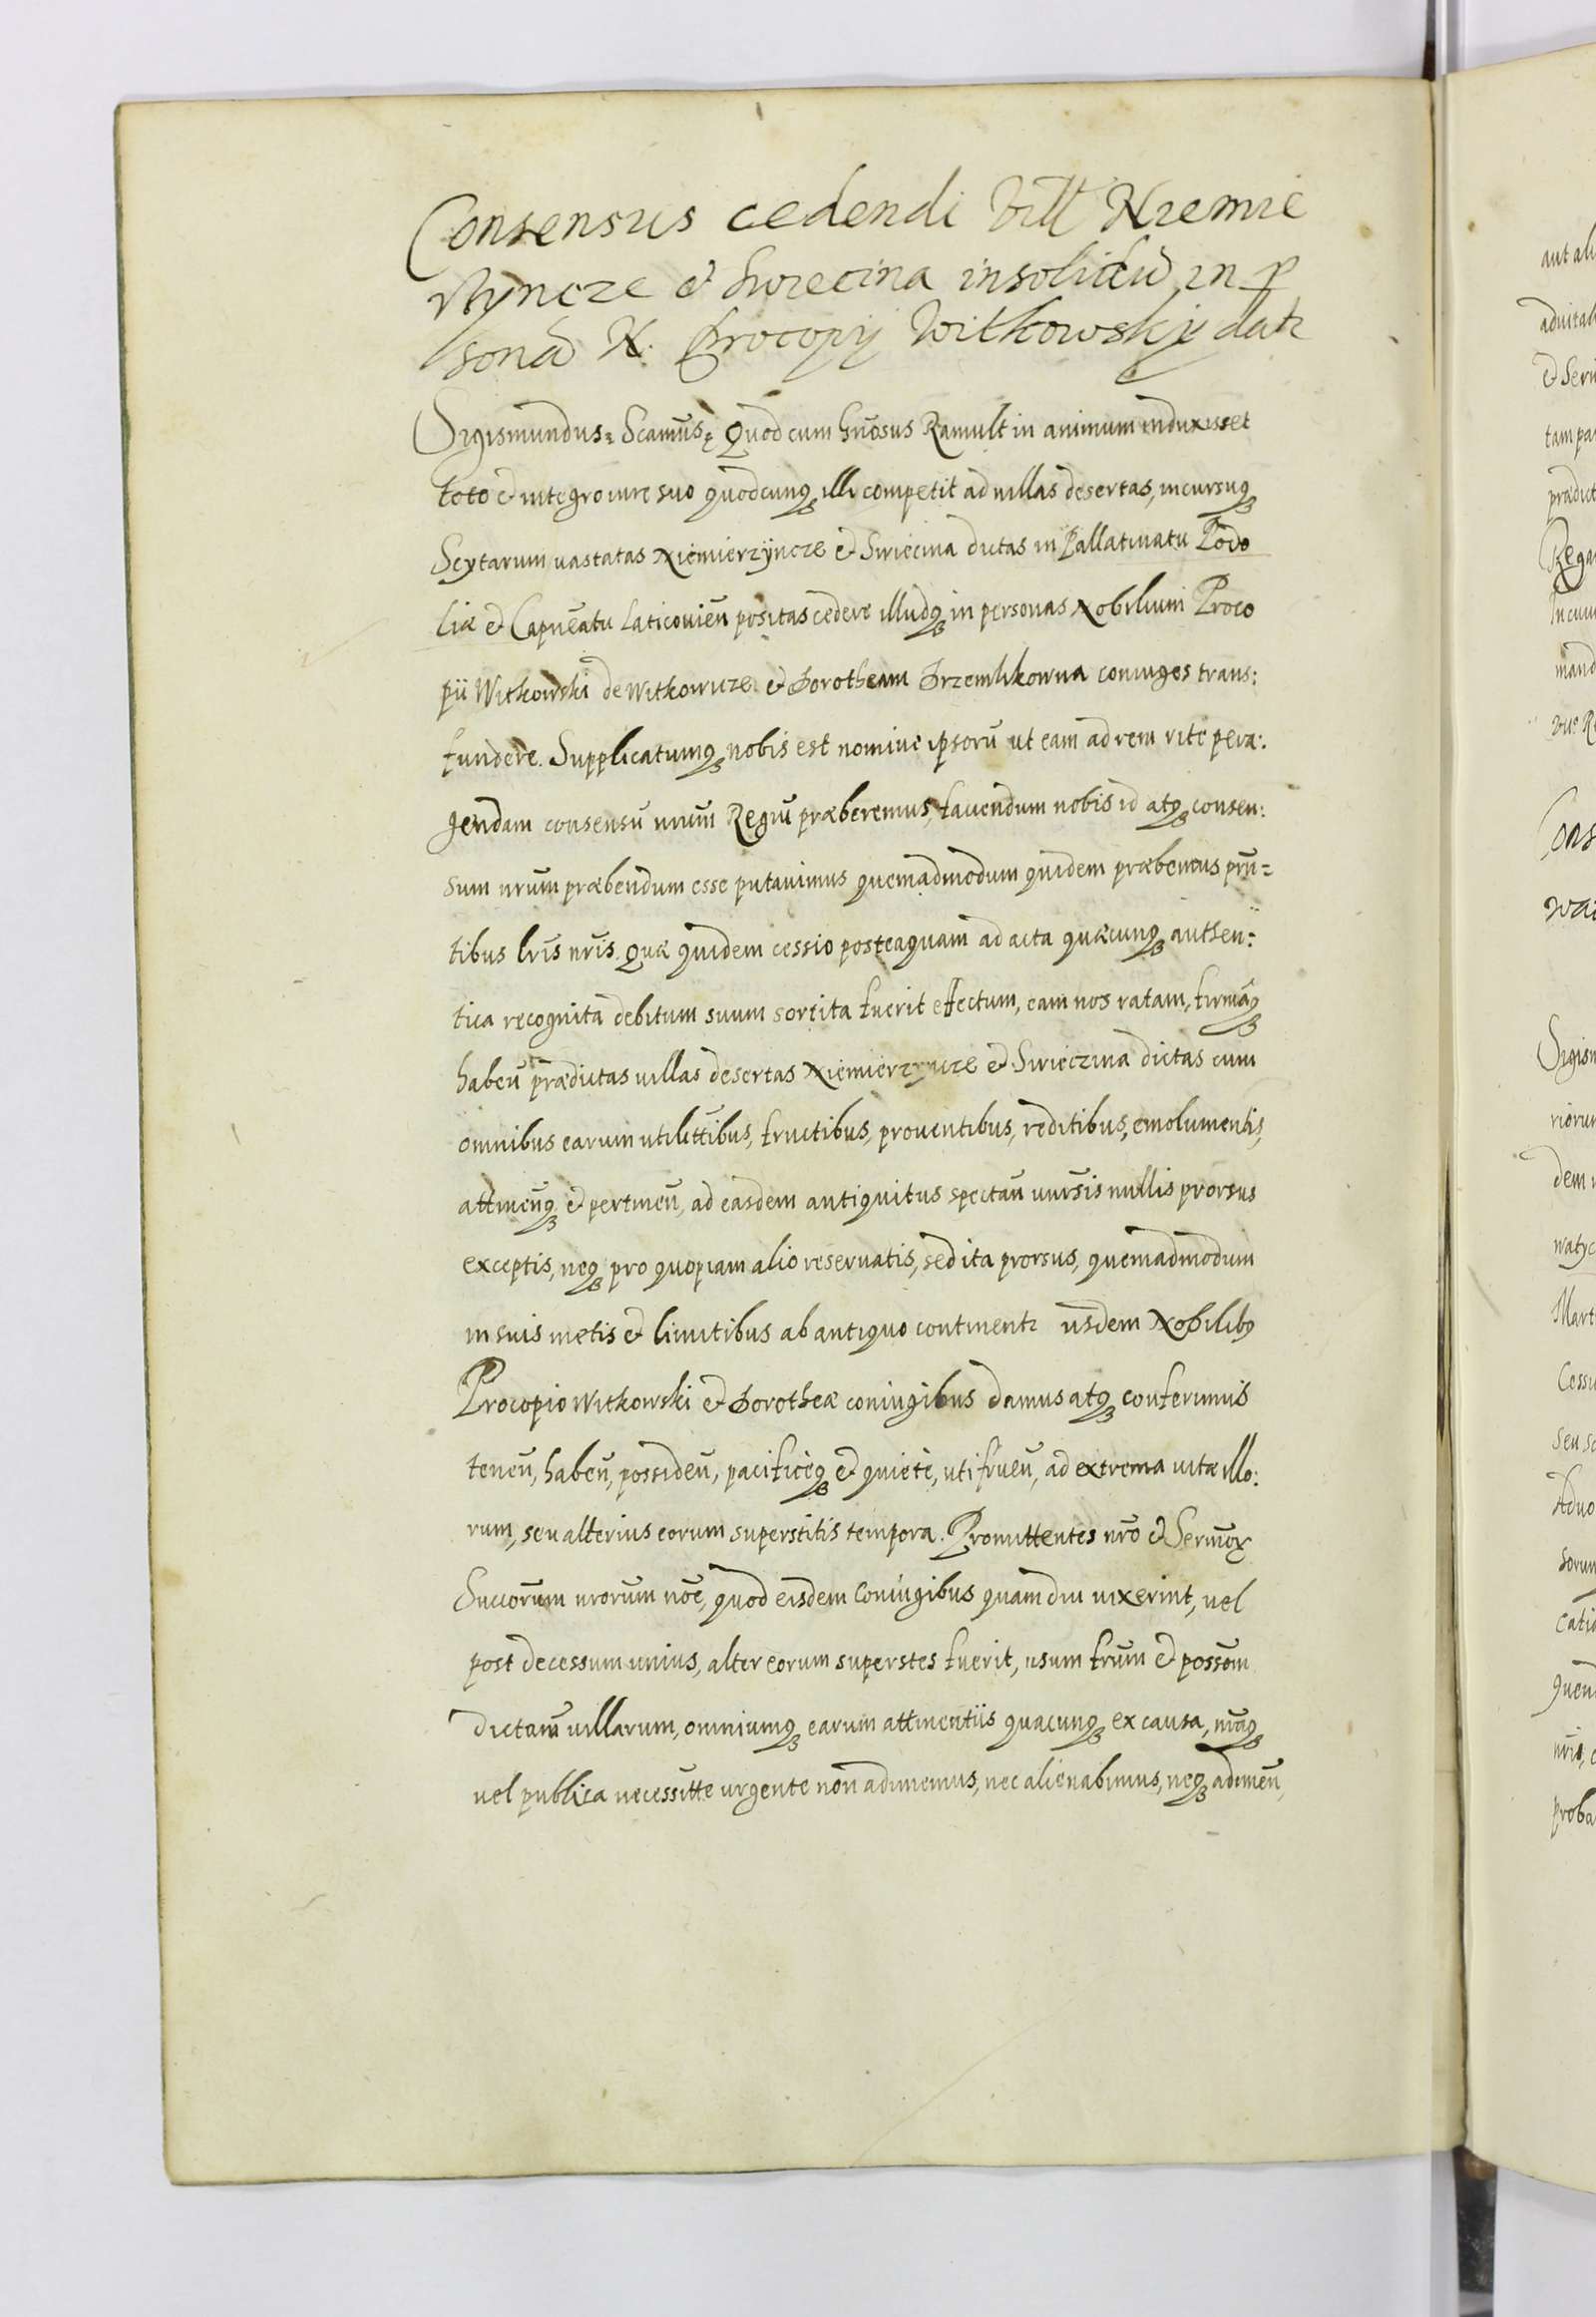 Consensus cedendi Vill Niemie
rzyncze et Swiecina in solidũ in p
sonã N. Procopij Witkowskj dat
Sigismundus: Scamũs: Quod cum Gnõsus Ramult in animum induxisset
toto et integro iure suo quodcunq illi competit ad uillas desertas, incursuq
Scytarum uastatas Niemierzÿncze et Swiecina dictas in Pallatinatu Podo
liæ et Capneatu Laticouien̄ positas cedere illudq in personas Nobilium Proco
pii Witkowski de Witkowicze et Dorotheam Brzemhkowna coniuges trans:
fundere. Supplicatumq nobis est nomine ipsorũ ut eam ad rem rite pera:
gendam consensũ nrum̄ Regiũ præberemus, fauendum nobis id atq consen:
sum nrum̄ præbendum esse putauimus quemadmodum quidem præbemus prñ=
tibus lrĩs nrĩs. Quæ quidem cessio posteaquam ad acta quæcunq authen:
tica recognita debitum suum sortita fuerit effectum, eam nos ratam, firmãq
haben̄ prædictas uillas desertas Niemierzyncze et Swieczina dictas cum
omnibus earum utilittĩbus, fructibus, prouentibus, reditibus, emolumentis,
attinen̄q et pertinen̄, ad easdem antiquitus spectan̄ uniũrsis nullis prorsus
exceptis, neq pro quopiam alio reseruatis, sed ita prorsus, quemadmodum
in suis metis et limitibus ab antiquo continentr iisdem Nobilibq
Procopio Witkowski et Dorotheæ coniugibus damus atq conferimus
tenen̄, haben̄, possiden̄, pacificèq et quietè, uti fruen̄, ad extrema uitæ illo:
rum, seu alterius eorum superstitis tempora. Promittentes nrõ et Sermor̃
Succorũm nrorũm nõe, quod eisdem Coniugibus quam diu uixerint, uel
post decessum unius, alter eorum superstes fuerit, usum frum̄ et possõm
dictarũ uillarum, omniumq earum attinentiis quacunq ex causa, nrãq
uel publica necessitte urgente non adimemus, nec alienabimus, neq adimen̄,